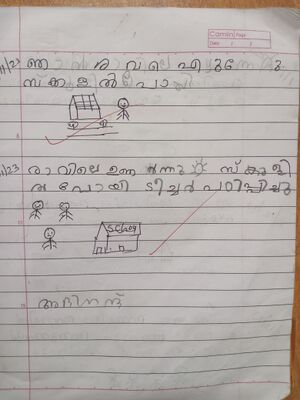 Camlin Page
Date / /
11/23 ഞാ രാവിലെ എഴുന്നേറ്റു
സ്കൂളിൽ പോയി
11/23 രാവിലെ ഉണർന്നു സ്കൂളി
ൽ പോയി ടീച്ചർ പഠിപ്പിച്ചു
School
അഭിനന്ദ്